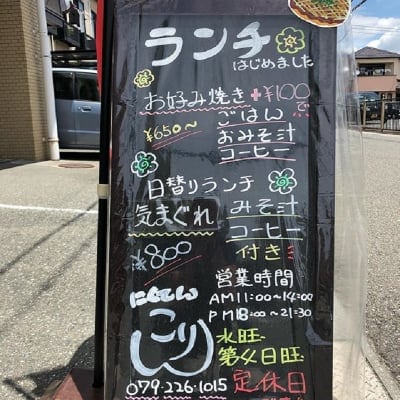 ランチ
はじめました
お好み焼き +¥100で
¥650~
ごはん
おみそ汁
コーヒー
日替りランチ
気まぐれ
みそ汁
コーヒー
付き
¥800
営業時間
AM11:00~14:00
PM18:00~21:30
水旺
第4日旺
079-226-1015
定休日